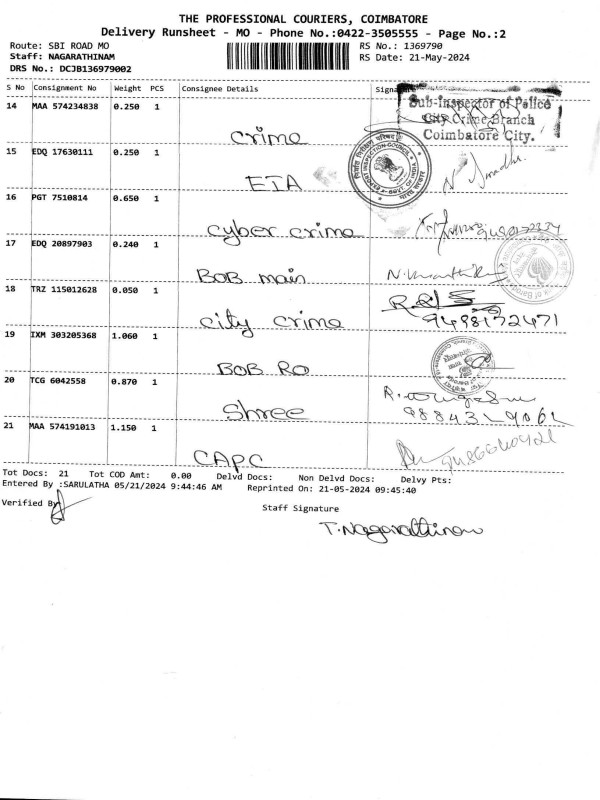 THE PROFESSIONAL COURIERS, COIMBATORE
Delivery Runsheet - MO - Phone No.:0422-3505555 - Page No.:2
Route: SBI ROAD MO RS No.: 1369790
Staff: NAGARATHINAM RS Date: 21-May-2024
DRS No.: DCJB136979002
S No Consignment No Weight PCS Consignee Details Signature
14 MAA 574234838 0.250 1 crime
Sub-Inspector of Police
City Crime Branch
Coimbatore City.
15 EDQ 17630111 0.250 1 EIA
16 PGT 7510814 0.650 1 cyber crime
17 EDQ 20897903 0.240 1 BOB main
18 TRZ 115012628 0.050 1 city crime
9498172471
19 IXM 303205368 1.060 1 BOB RO
20 TCG 6042558 0.870 1 Shree
21 MAA 574191013 1.150 1 CAPC
Tot Docs: 21 Tot COD Amt: 0.00 Delvd Docs: Non Delvd Docs: Delvy Pts:
Entered By :SARULATHA 05/21/2024 9:44:46 AM Reprinted On: 21-05-2024 09:45:40
Verified By
Staff Signature
T. Nagarathinam